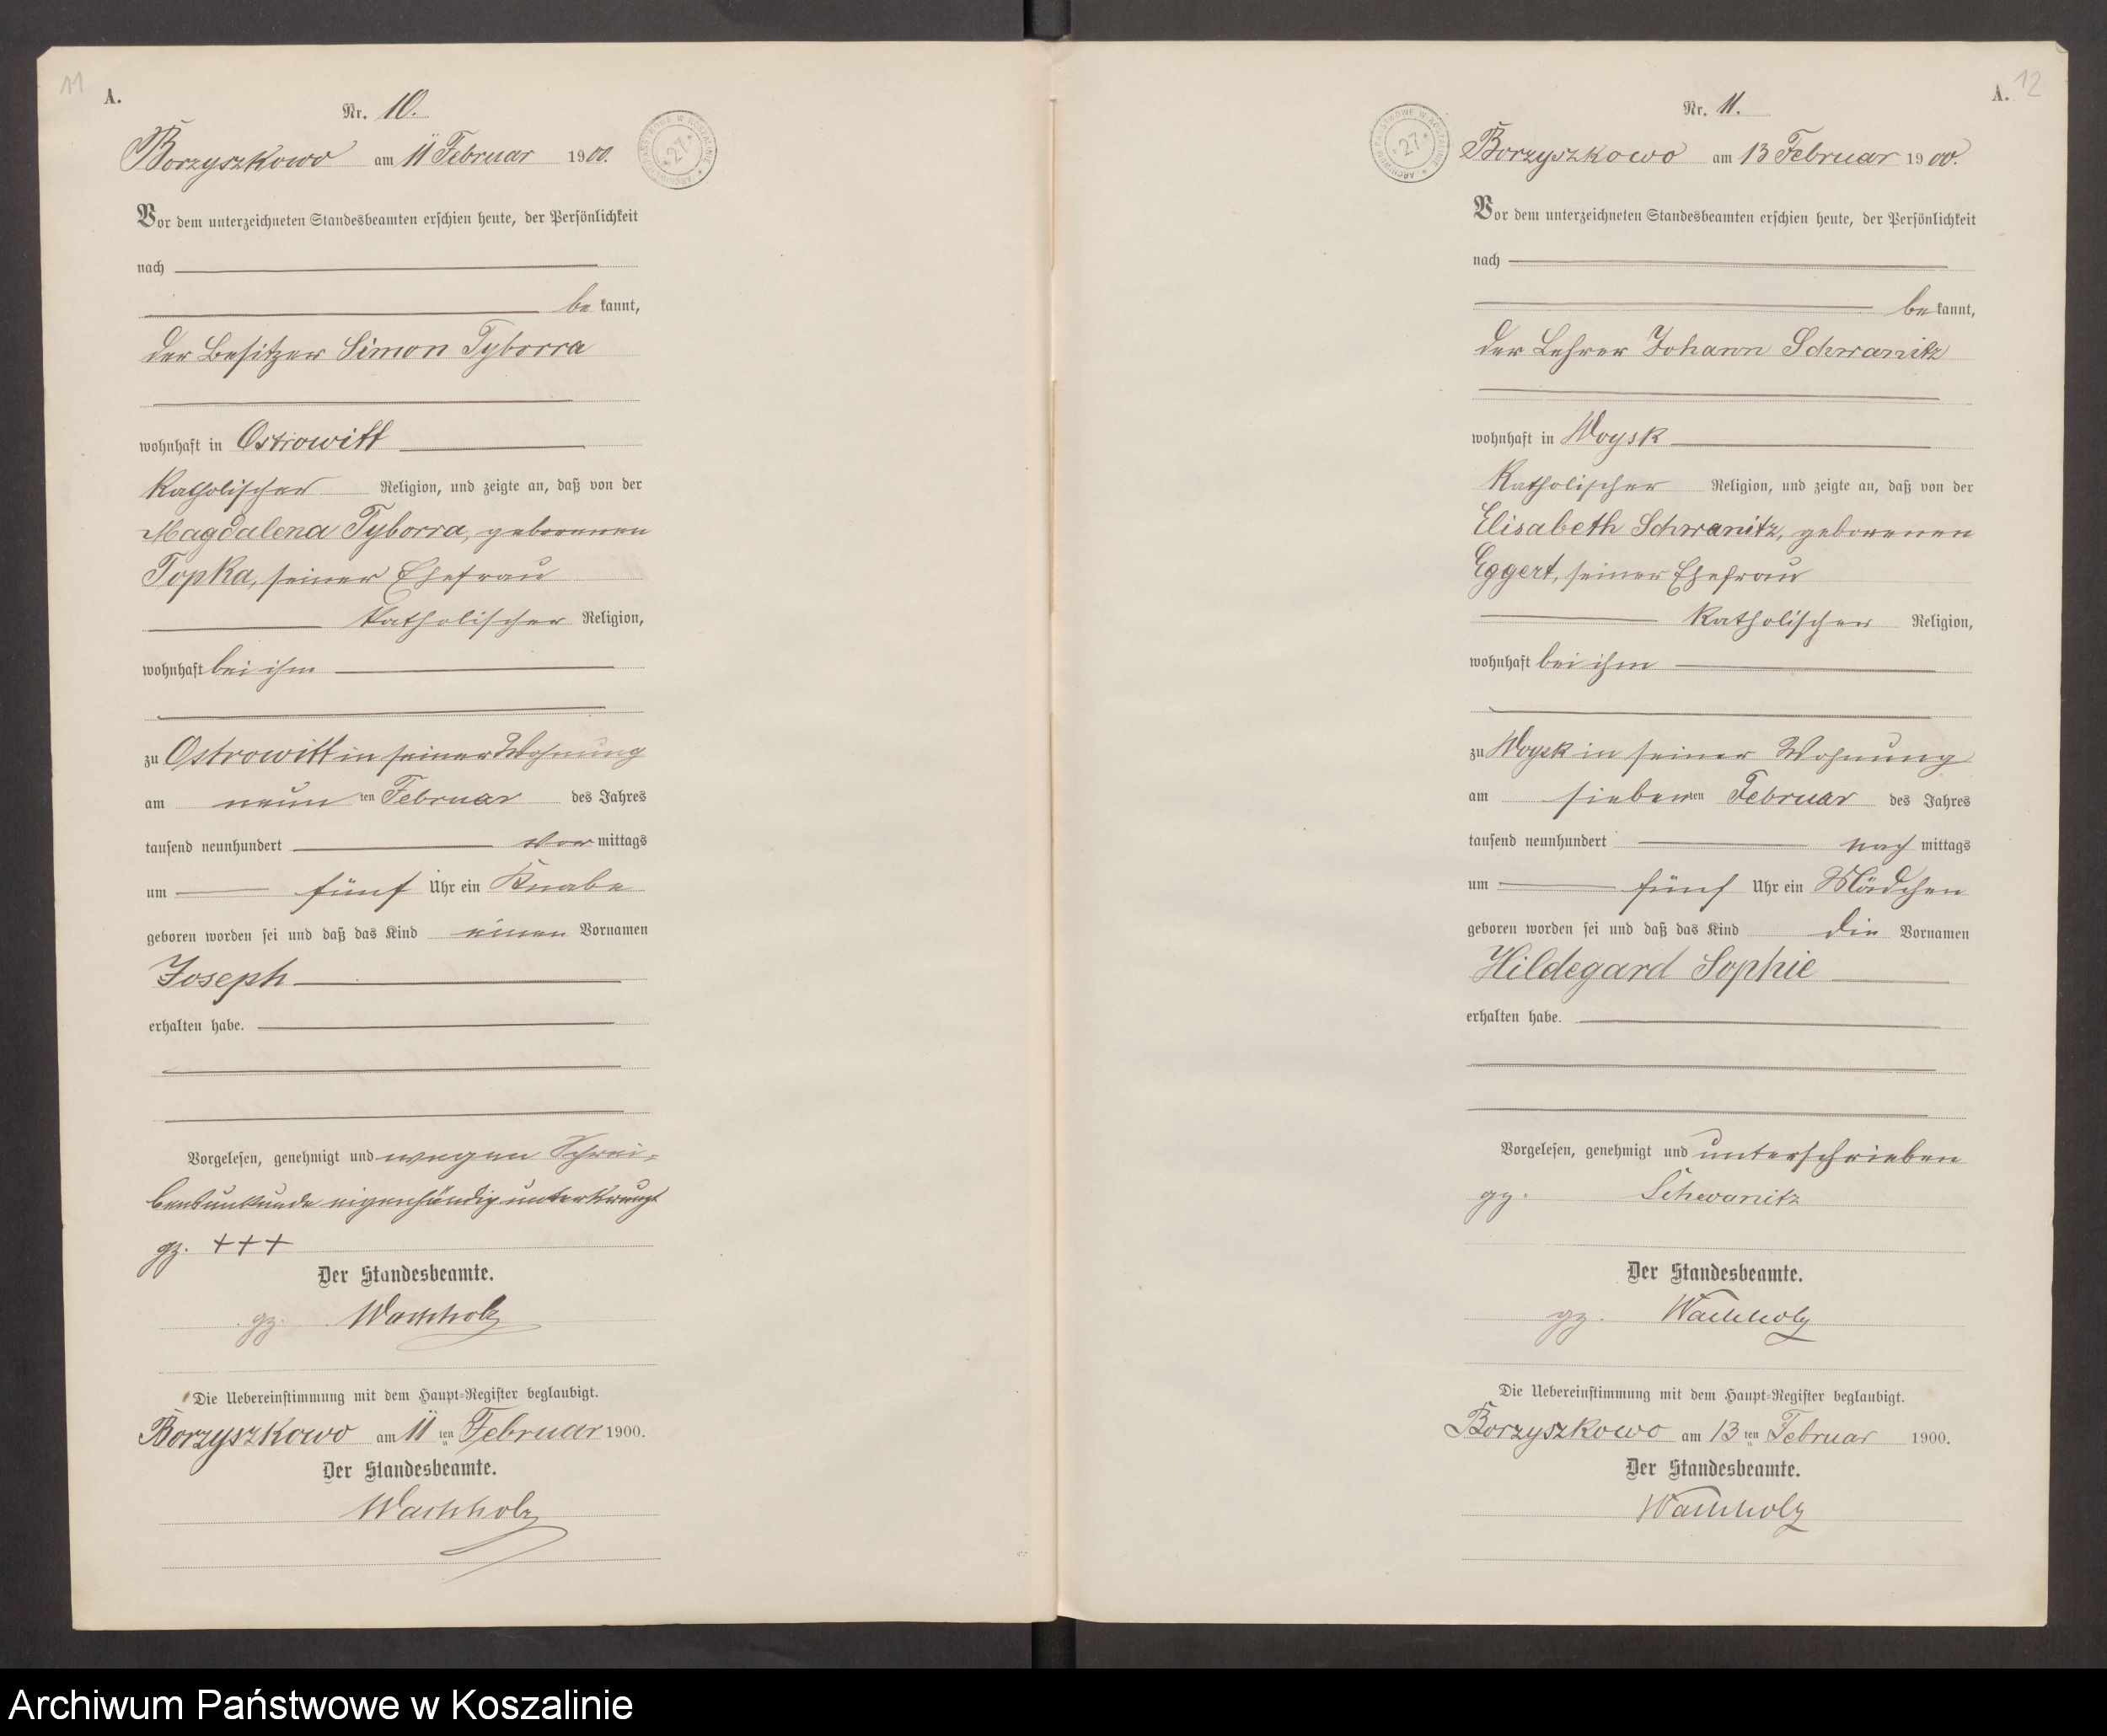 11
A.
Nr. 10.
Borzyszkowo am 11 Februar 1900.
ARCHIWUM PAŃSTWOWE W KOSZALINIE * 27 *
Vor dem unterzeichneten Standesbeamten erschien heute, der Persönlichkeit
nach
be kannt,
der Besitzer Simon Tyborra
wohnhaft in Ostrowitt
katholischer Religion, und zeigte an, daß von der
Magdalena Tyborra, geborenen
Topka, seiner Ehefrau
katholischer Religion,
wohnhaft bei ihm
zu Ostrowitt in seiner Wohnung
am neun ten Februar des Jahres
tausend neunhundert Vor mittags
um fünf Uhr ein Knabe
geboren worden sei und daß das Kind einen Vornamen
Joseph
erhalten habe.
Vorgelesen, genehmigt und wegen Schrei-
bensunkunde eigenhändig unterkreuzt
gz. +++
Der Standesbeamte.
gz. Wachholz
Die Uebereinstimmung mit dem Haupt-Register beglaubigt.
Borzyszkowo am 11 ten Februar 1900.
Der Standesbeamte.
Wachholz
A. 12
Nr. 11.
Borzyszkowo am 13 Februar 1900.
ARCHIWUM PAŃSTWOWE W KOSZALINIE * 27 *
Vor dem unterzeichneten Standesbeamten erschien heute, der Persönlichkeit
nach
be kannt,
der Lehrer Johann Schwanitz
wohnhaft in Woysk
katholischer Religion, und zeigte an, daß von der
Elisabeth Schwanitz, geborenen
Eggert, seiner Ehefrau
katholischer Religion,
wohnhaft bei ihm
zu Woysk in seiner Wohnung
am sieben ten Februar des Jahres
tausend neunhundert nach mittags
um fünf Uhr ein Mädchen
geboren worden sei und daß das Kind die Vornamen
Hildegard Sophie
erhalten habe.
Vorgelesen, genehmigt und unterschrieben
gz. Schwanitz
Der Standesbeamte.
gz. Wachholz
Die Uebereinstimmung mit dem Haupt-Register beglaubigt.
Borzyszkowo am 13 ten Februar 1900.
Der Standesbeamte.
Wachholz
Archiwum Państwowe w Koszalinie